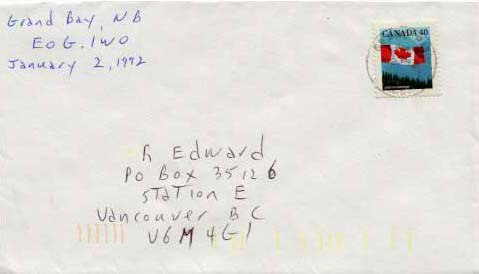 Grand Bay, NB
E0G.1W0
January 2, 1992
CANADA 40
R Edward
PO Box 35126
STATION E
Vancouver B C
V6M 4G1